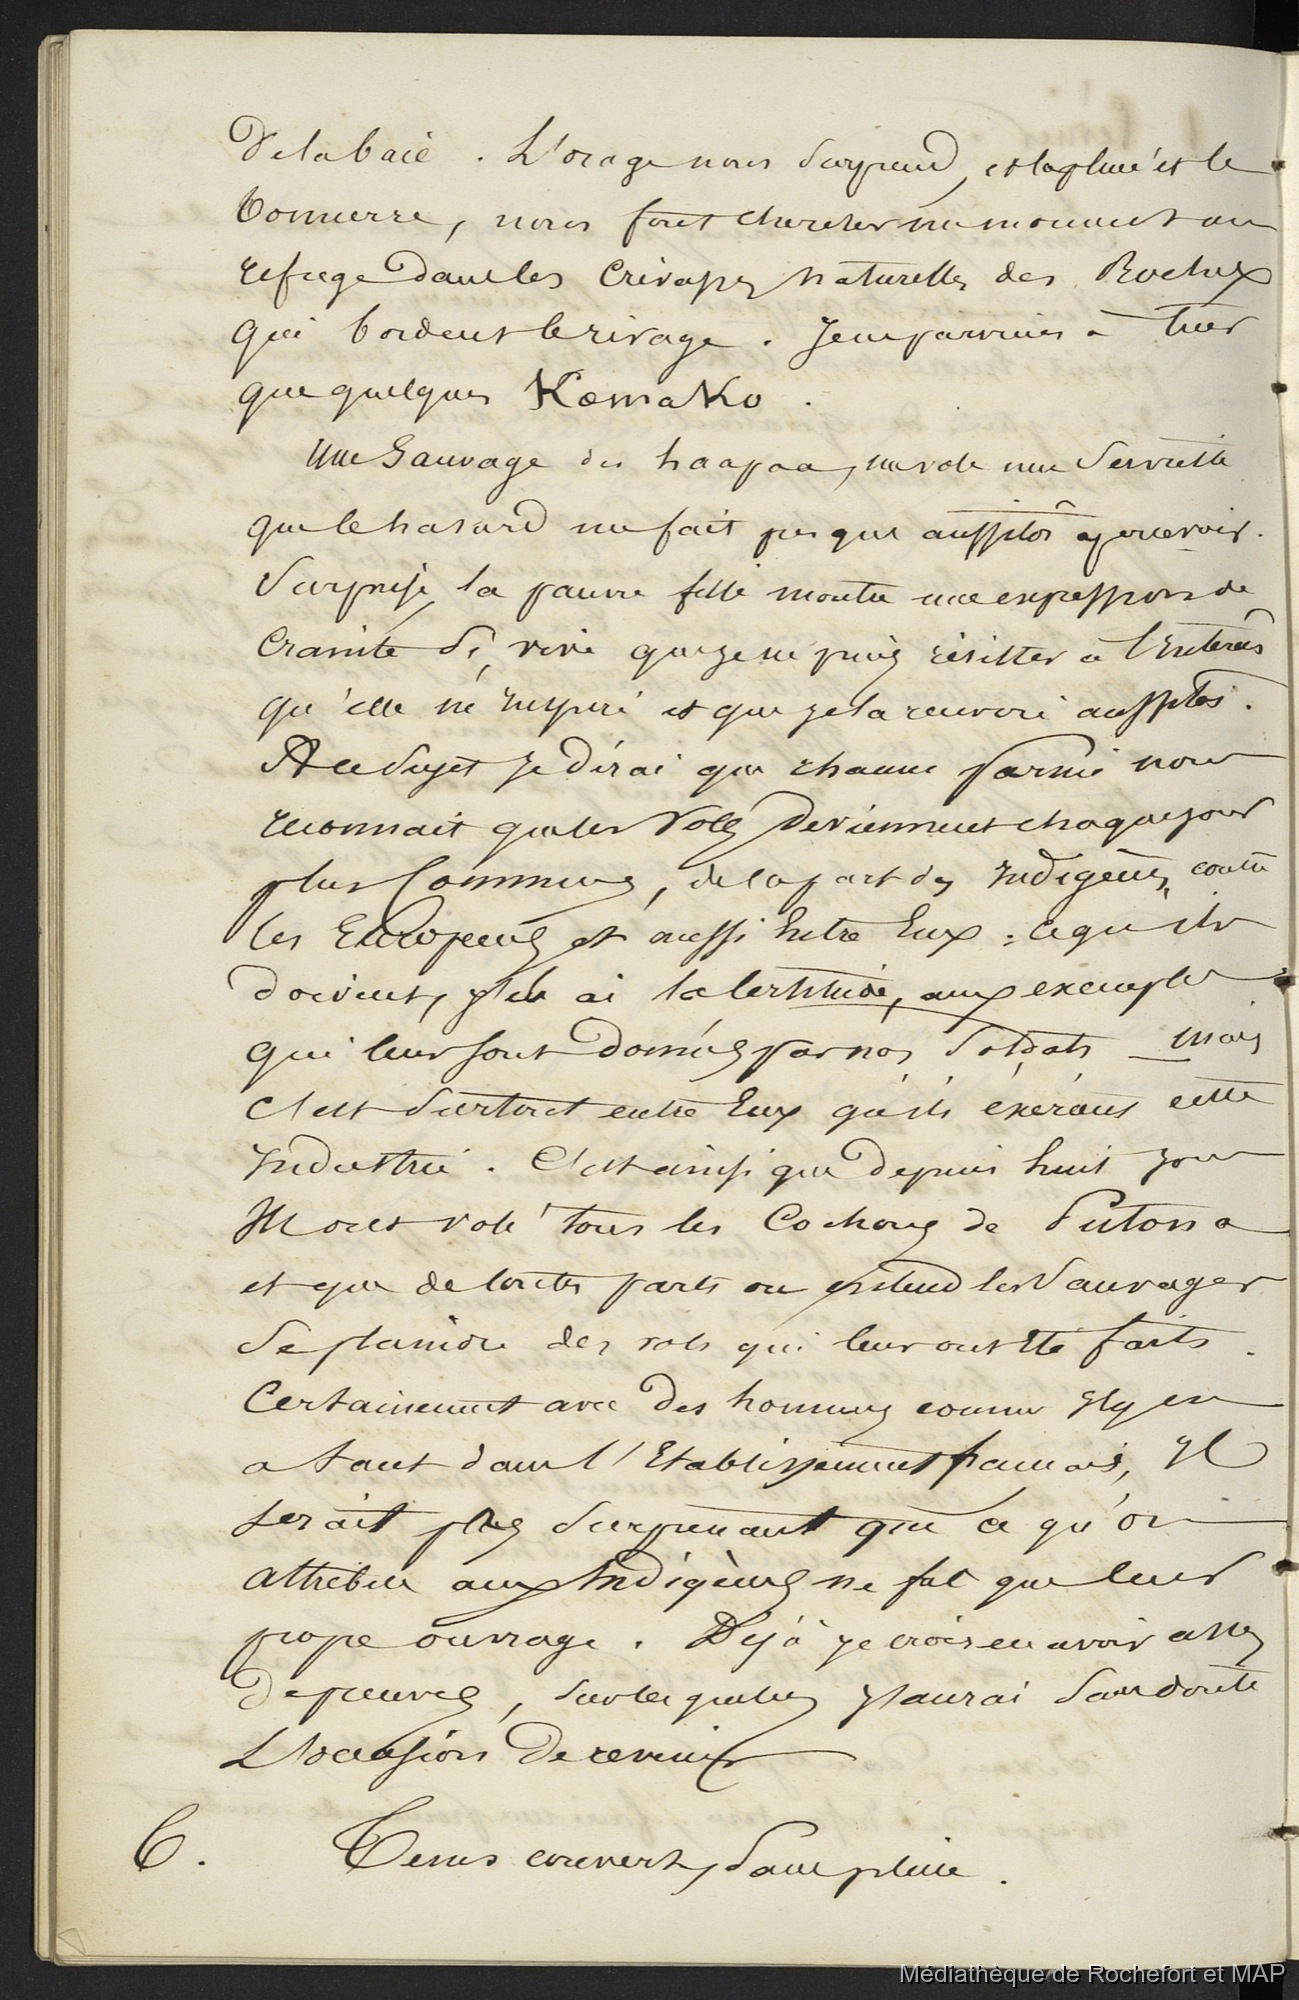 De la baie. L'orage nous surprend, et la pluie et le
tonnerre, nous font chercher un moment un
refuge dans les crévasses naturelles des Rochers
qui bordent le rivage. Je ne parviens à tuer
que quelques Kamako.
Une Sauvage des haapaa, me vole une Serviette
que le hasard me fait presque aussitôt apercevoir.
Surprise, la pauvre fille montre une expression de
crainte si vive que je ne puis résister à l'intérêt
qu'elle m'inspire et que je la renvoie aussitôt.
A ce sujet je dirai que chacun parmi nous
reconnait que les Vols deviennent chaque jour
plus Communs, de la part des Indigènes, contre
les Européens et aussi Entre Eux : ce qu'ils
doivent, j'en ai la certitude, aux exemples
qui leur sont donnés par nos Soldats _ mais
c'est surtout entre Eux qu'ils exercent cette
Industrie. C'est ainsi que depuis huit jours
ils ont volé tous les Cochons de
et que de toutes parts on entend les Sauvages
se plaindre des vols qui leur ont été faits.
Certainement avec des hommes comme Il y en
a tant dans l'Etablissement français, Il
serait peu surprenant que ce qu'on
attribue aux Indigènes ne fut que leur
propre ouvrage. Déjà je crois en avoir assez
de preuves, sur lesquelles J'aurai sans doute
L'occasion De revenir
6. Tems couvert, Sans pluie.
Médiathèque de Rochefort et MAP